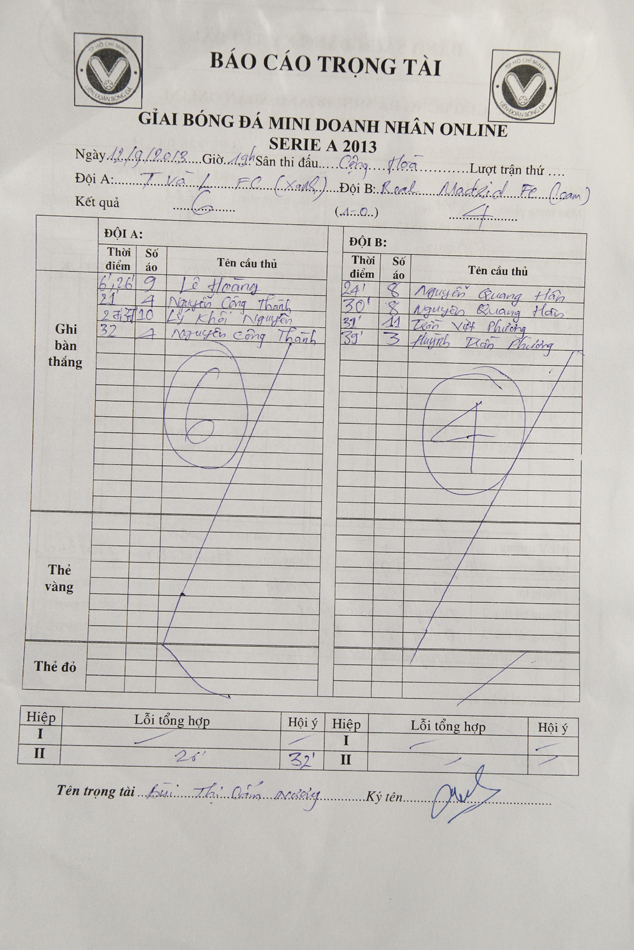 TP HỒ CHÍ MINH
LIÊN ĐOÀN BÓNG ĐÁ
BÁO CÁO TRỌNG TÀI
TP HỒ CHÍ MINH
LIÊN ĐOÀN BÓNG ĐÁ
GIẢI BÓNG ĐÁ MINI DOANH NHÂN ONLINE
SERIE A 2013
Ngày 12/9/2013 Giờ 19h Sân thi đấu Cộng Hoà Lượt trận thứ ....
Đội A: T và L FC (xanh) Đội B: Real Madrid FC (cam)
Kết quả 6 (1-0) 4
ĐỘI A: ĐỘI B:
Thời điểm Số áo Tên cầu thủ Thời điểm Số áo Tên cầu thủ
Ghi bàn thắng
6', 26' 9 Lê Hoàng 24' 8 Nguyễn Quang Hân
21 4 Nguyễn Công Thành 30' 8 Nguyễn Quang Hân
10 Lý Khôi Nguyên 31' 11 Trần Việt Phương
32 4 Nguyễn Công Thành 39' 3 Huỳnh Trần Phương
6 4
Thẻ vàng
Thẻ đỏ
Hiệp Lỗi tổng hợp Hội ý Hiệp Lỗi tổng hợp Hội ý
I I
II 32' II
Tên trọng tài Bùi Thị Nương Ký tên